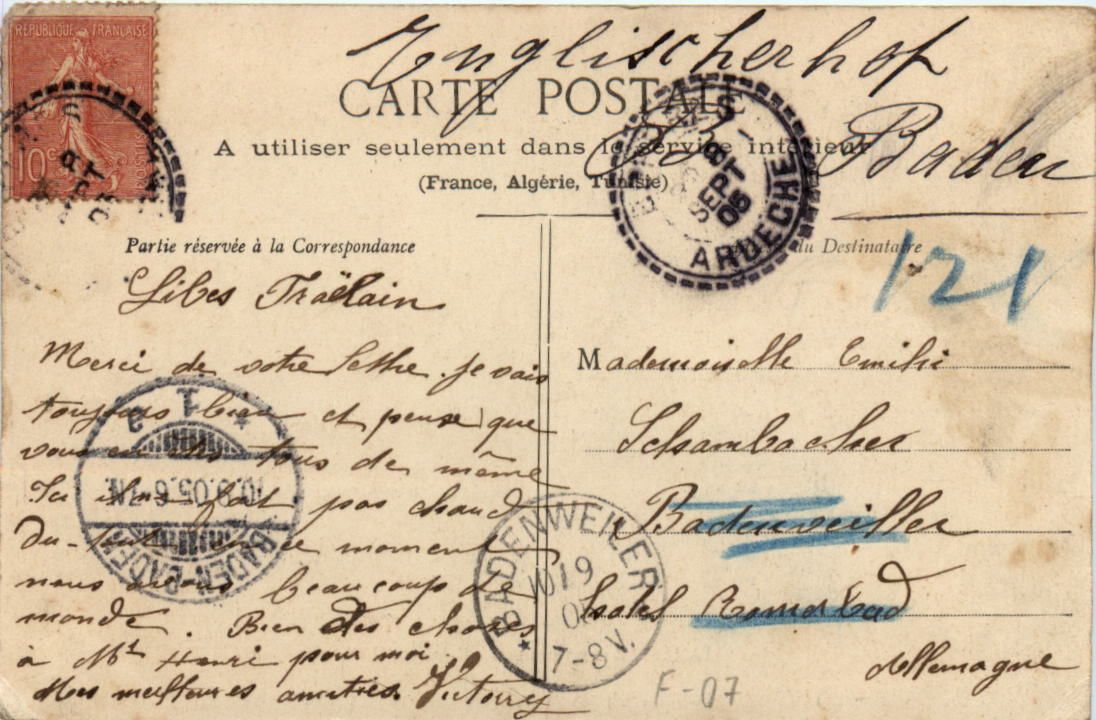 Englischerhof
CARTE POSTALE
A utiliser seulement dans le service intérieur
Baden
(France, Algérie, Tunisie)
RÉPUBLIQUE FRANÇAISE
10c
SEPT
05
ARDECHE
Partie réservée à la Correspondance
du Destinataire
121
Libes Fraëlain
Merci de votre lettre. je vais
toujours bien et pense que
vous en êtes tous de même
Ici il ne fait pas chaud
du-tout en ce moment
nous avons beaucoup de
monde. Bien des choses
à Mr Henri pour moi.
Mes meilleures amitiés
Mademoiselle Emilie
Schambacher
Badenweiller
hotel Romerbad
Allemagne
BADEN-BADEN
10.9.05.6-7N.
* 1 a
BADENWEILER
10 9
7-8V.
F-07